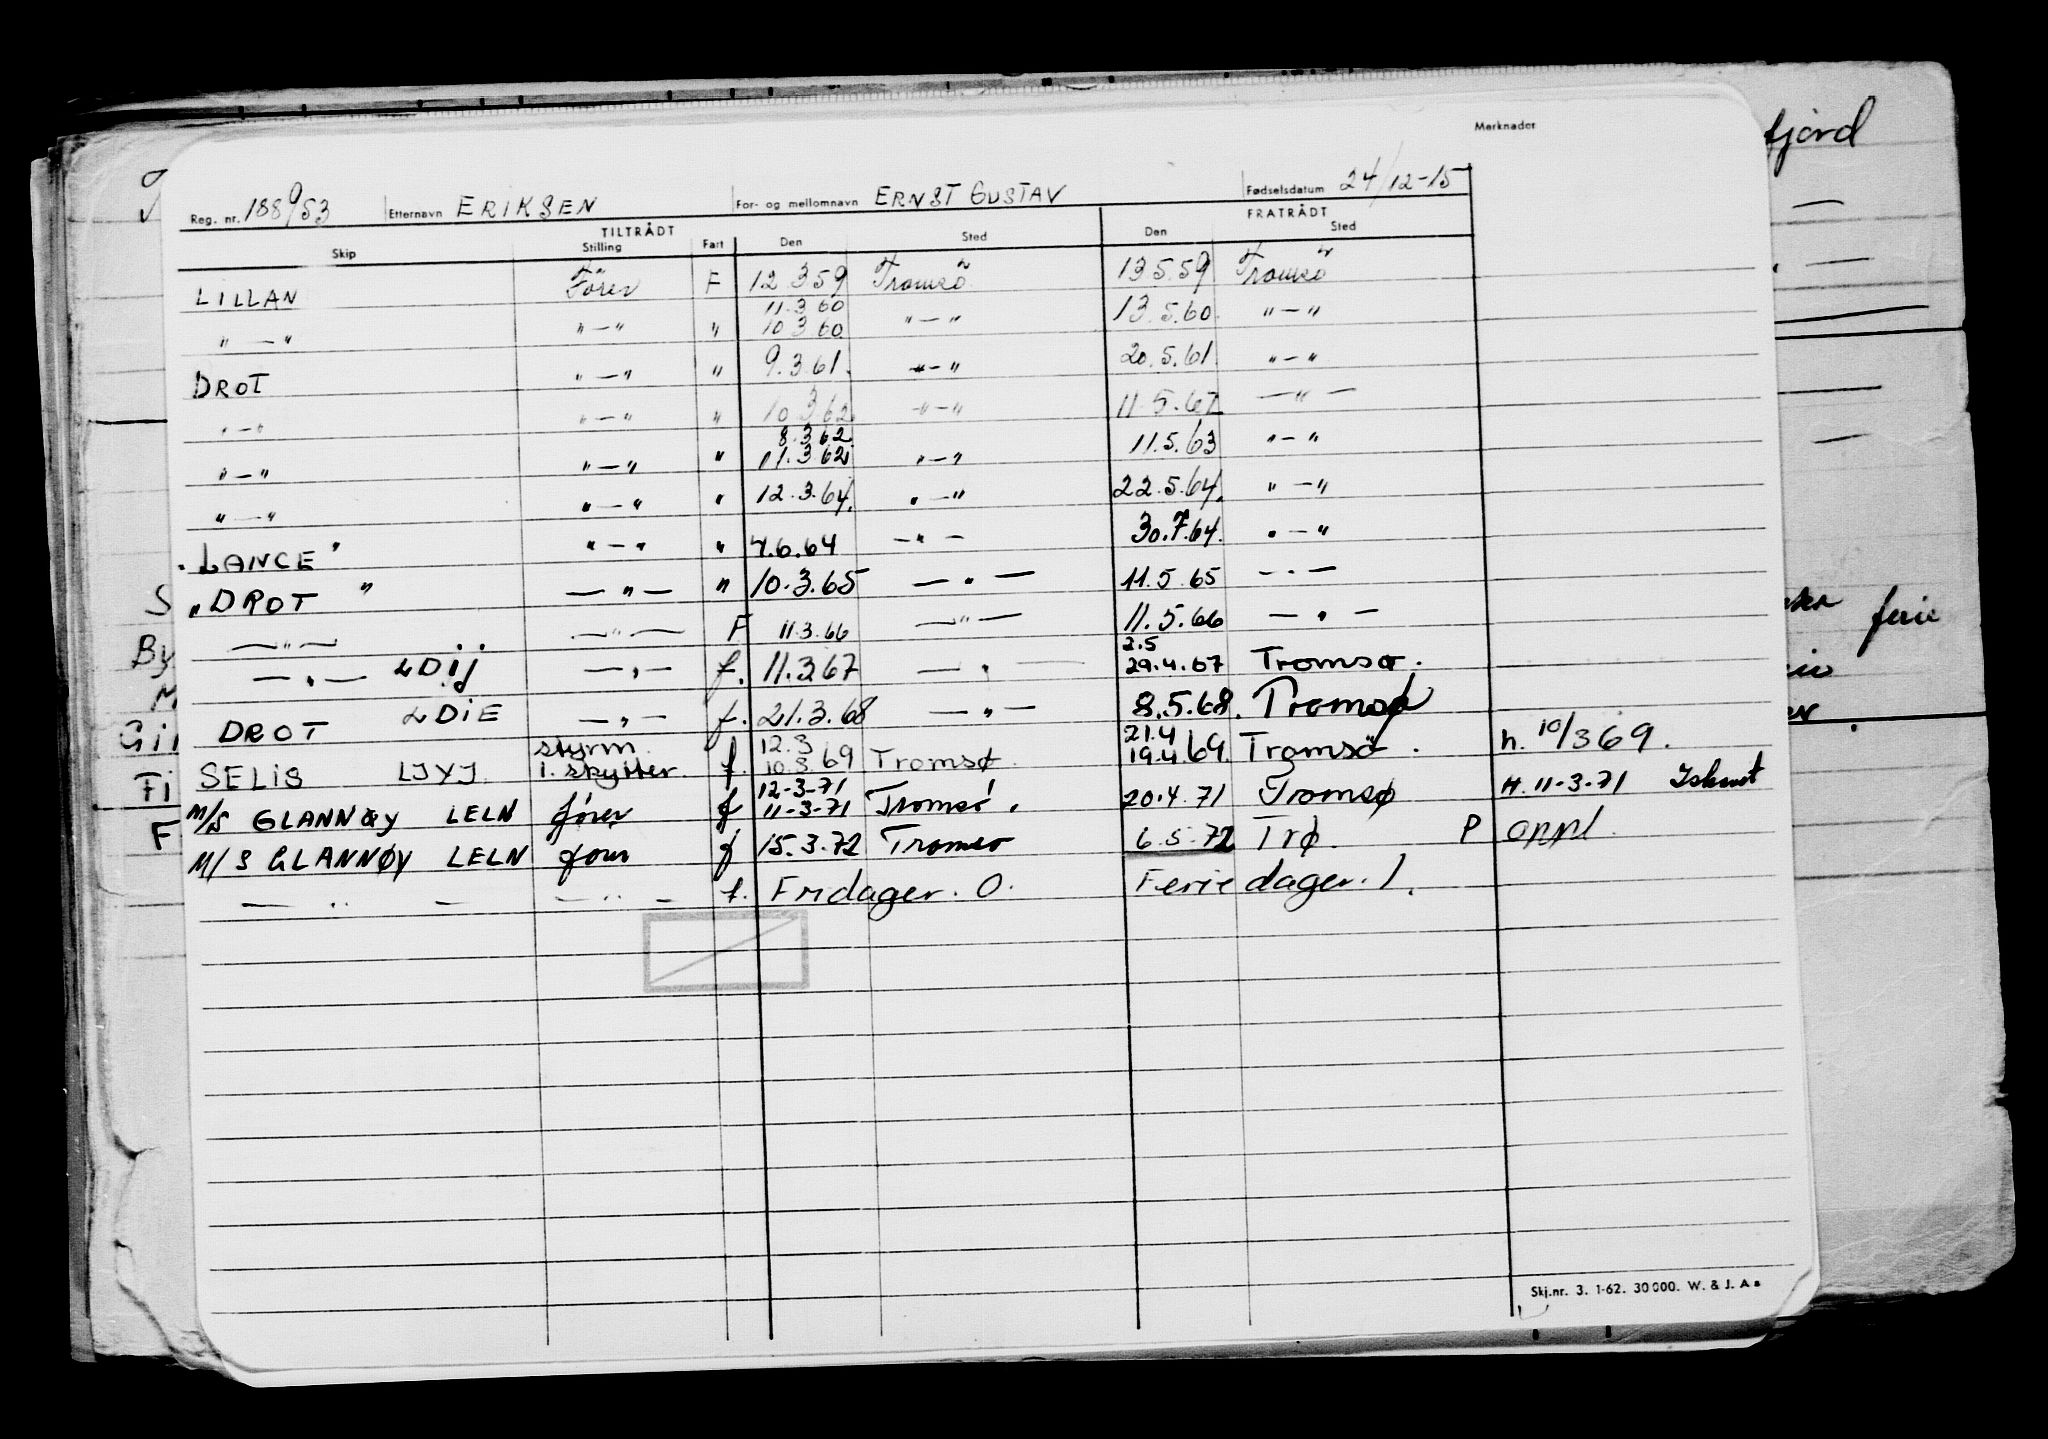 Merknader
Reg. nr. 188953 Etternavn ERIKSEN For- og mellomnavn ERNST GUSTAV Fødselsdatum 24/12-15
TILTRÅDT FRATRÅDT
Skip Stilling Fart Den Sted Den Sted
LILLAN Förer F 12.3.59 Tromsö 13.5.59 Tromsö
11.3.60
" — " " — " " 10.3.60 " — " 13.5.60. " — "
DROT " — " " 9.3.61. " — " 20.5.61 " — "
" — " " — " " 10.3.62. " — " 11.5.62 — " —
8.3.62
" — " " — " " 11.3.62 " — " 11.5.63 " — "
" — " " — " " 12.3.64. " — " 22.5.64. " — "
"LANCE" " — " " 4.6.64 — " — 30.7.64. " — "
"DROT" — " — " 10.3.65 — " — 11.5.65 — " —
— " — — " — F 11.3.66 — " — 11.5.66 — " —
2.5
— " — LDIJ — " — f. 11.3.67 — " — 29.4.67 Tromsø.
DROT LDIE — " — f. 21.3.68 — " — 8.5.68. Tromsø
styrm. 12.3 21.4
SELIS LJYJ 1. skytter. f. 10.3.69 Tromsø. 19.4.69. Tromsø. h. 10/3 69.
12-3-71
M/S GLANNØY LELN fører f 11-3-71 Tromsø. 20.4.71 Tromsø H. 11-3-71
M/S GLANNØY LELN fører f 15.3.72 Tromsø 6.5.72 Trø. P oppl.
— " — — " — f. Fridager. 0. Feriedager. 1.
Skj.nr. 3. 1-62. 30000. W. & J. A s
fjord
ferie